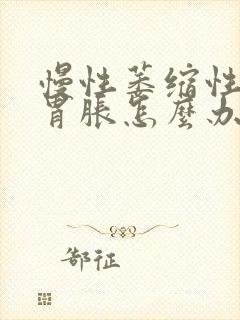 慢性萎缩性
胃胀怎麼办
郜征